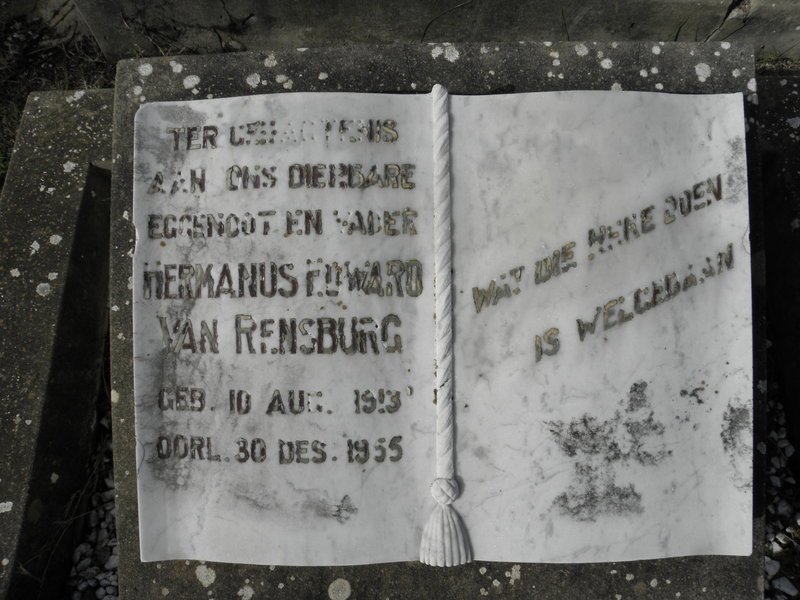 TER GEDAGTENIS
AAN ONS DIERBARE
EGGENOOT EN VADER
HERMANUS EDWARD
VAN RENSBURG
GEB. 10 AUG. 1913
OORL. 30 DES. 1955
WAT DIE HERE DOEN
IS WELGEDAAN